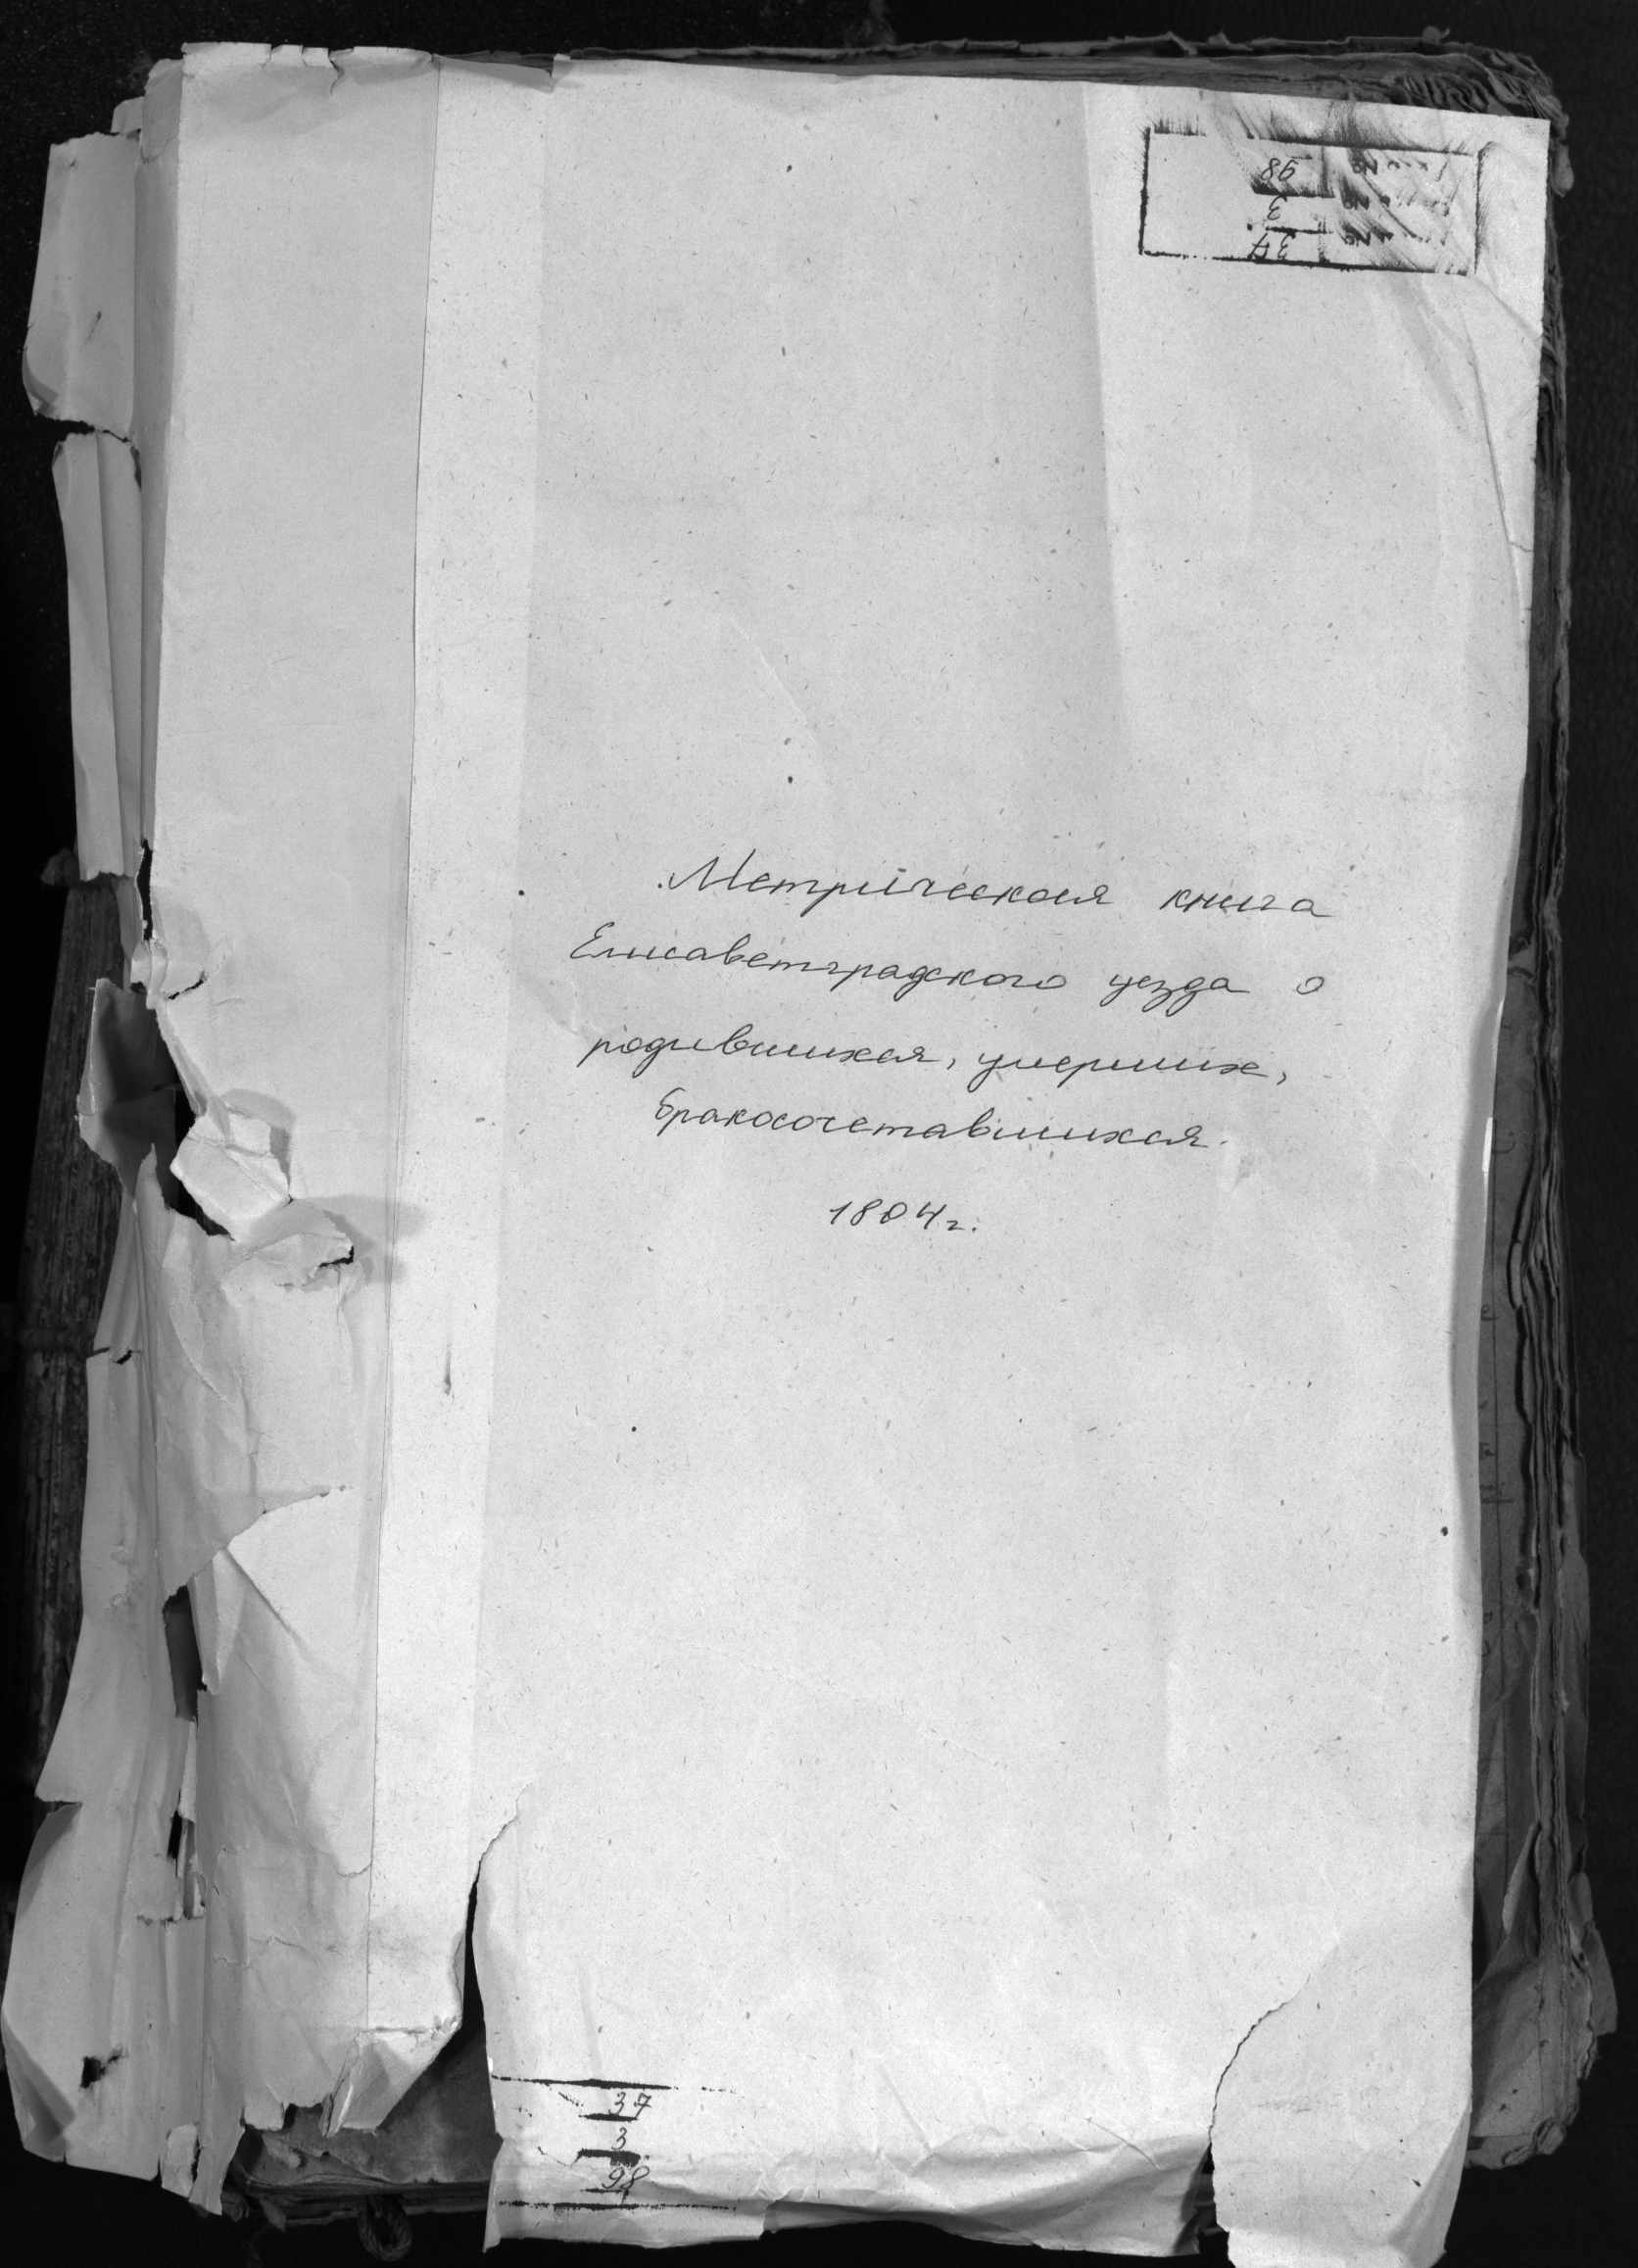 98
3
37
Метрическая книга
Елисаветградского уезда о
родившихся, умерших,
бракосочетавшихся.
1804 г.
37
3
98